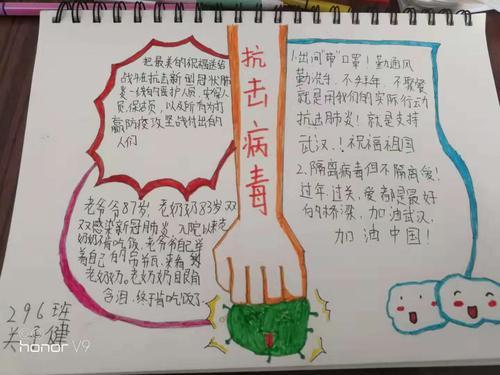 把最美的祝福送给
战斗在抗击新型冠状肺
炎一线的医护人员,安保人
员,保洁员,以及所有为打
赢防疫攻坚战付出的
人们
抗击病毒
1.出门“带”口罩!勤通风
勤洗手,不拜年,不聚餐
就是用我们的实际行动
抗击肺炎!就是支持
武汉!祝福祖国
2.隔离病毒但不隔离爱!
过年过关,爱都是最好
的桥梁,加油武汉,
加油中国!
老爷爷87岁,老奶奶83岁双
双感染新冠肺炎,入院以来老
奶奶不肯吃饭,老爷爷自己举
着自己的吊瓶,来看到
老奶奶。老奶奶眼眶
含泪,终于肯吃饭了
296班
关子健
honor V9